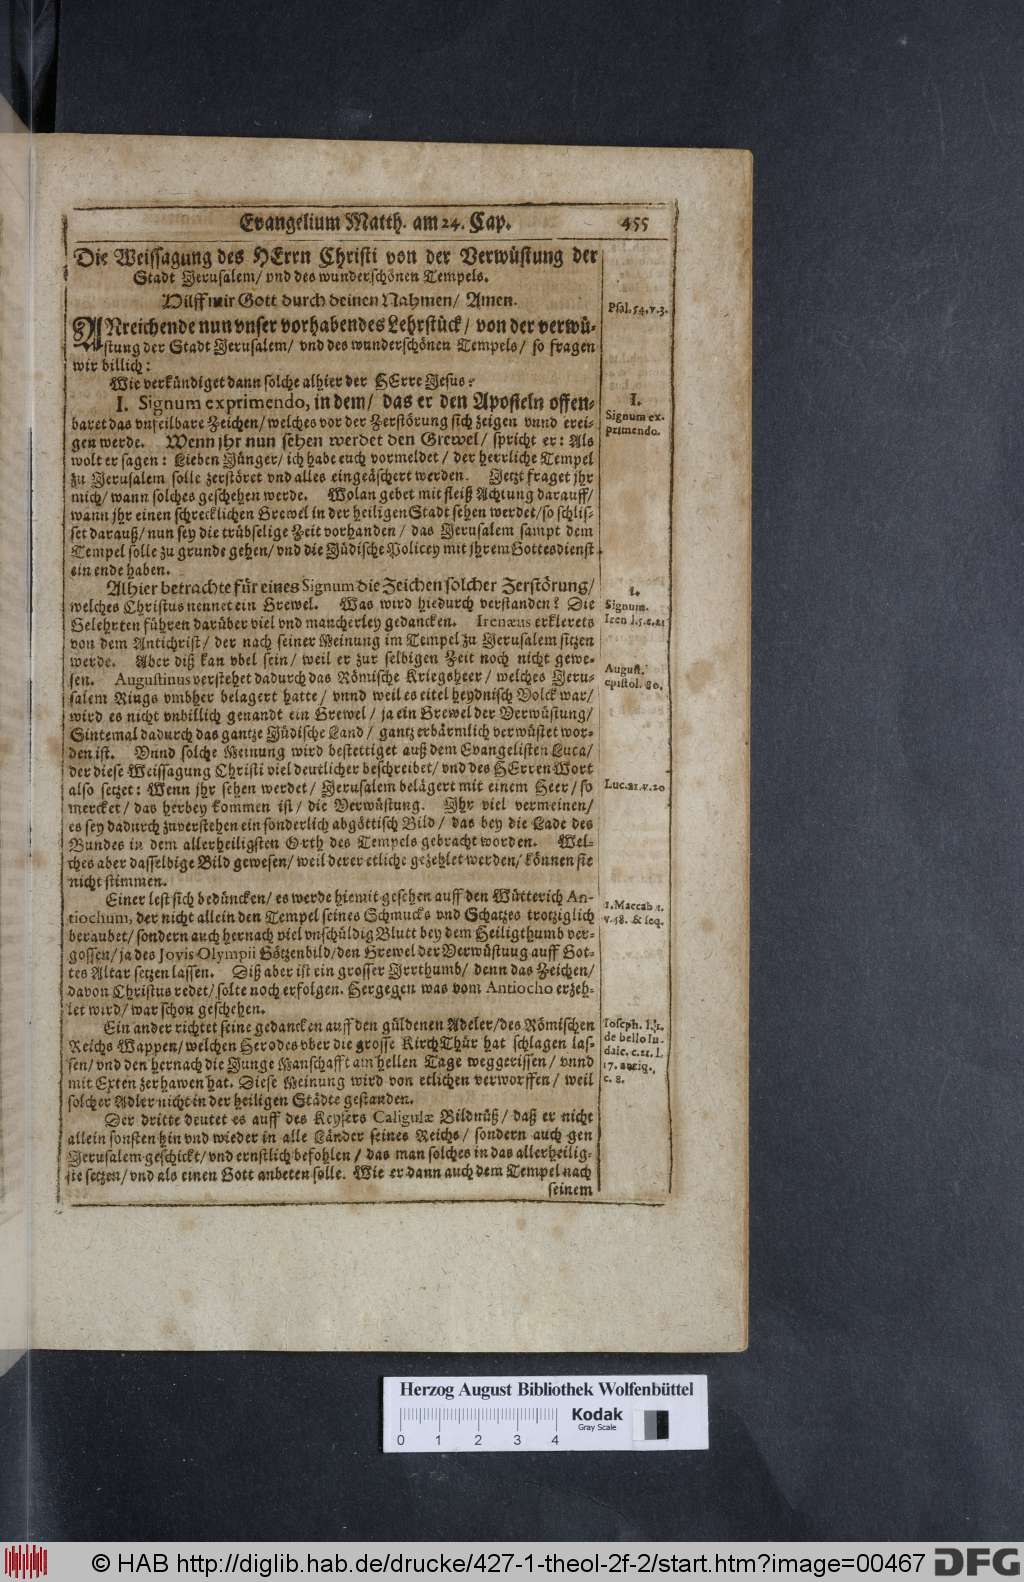 Evangelium Matth. am 24. Cap. 455
Die Weissagung des HErrn Christi von der Verwüstung der
Stadt Jerusalem/ vnd des wunderschönen Tempels.
Hilff mir Gott durch deinen Nahmen/ Amen.
Psal. 54. v. 3.
ANreichende nun vnser vorhabendes Lehrstück/ von der verwü-
stung der Stadt Jerusalem/ vnd des wunderschönen Tempels/ so fragen
wir billich:
Wie verkündiget dann solche alhier der HErre Jesus?
I. Signum exprimendo, in dem/ das er den Aposteln offen-
baret das vnfeilbare Zeichen/ welches vor der Zerstörung sich zeigen vnnd erei-
gen werde. Wenn jhr nun sehen werdet den Grewel/ spricht er: Als
wolt er sagen: Lieben Jünger/ ich habe euch vormeldet/ der herrliche Tempel
zu Jerusalem solle zerstöret vnd alles eingeäschert werden. Jetzt fraget jhr
mich/ wann solches geschehen werde. Wolan gebet mit fleiß Achtung darauff/
wann jhr einen schrecklichen Grewel in der heiligen Stadt sehen werdet/ so schlis-
set darauß/ nun sey die trübselige Zeit vorhanden/ das Jerusalem sampt dem
Tempel solle zu grunde gehen/ vnd die Jüdische Policey mit jhrem Gottesdienst
ein ende haben.
I.
Signum ex-
primendo.
Alhier betrachte für eines Signum die Zeichen solcher Zerstörung/
welches Christus nennet ein Grewel. Was wird hiedurch verstanden? Die
Gelehrten führen darüber viel vnd mancherley gedancken. Irenæus erklerets
von dem Antichrist/ der nach seiner Meinung im Tempel zu Jerusalem sitzen
werde. Aber diß kan vbel sein/ weil er zur selbigen Zeit noch nicht gewe-
sen. Augustinus verstehet dadurch das Römische Kriegsheer/ welches Jeru-
salem Rings vmbher belagert hatte/ vnnd weil es eitel heydnisch Volck war/
wird es nicht vnbillich genandt ein Grewel/ ja ein Grewel der Verwüstung/
Sintemal dadurch das gantze Jüdische Land/ gantz erbärmlich verwüstet wor-
den ist. Vnnd solche Meinung wird bestettiget auß dem Evangelisten Luca/
der diese Weissagung Christi viel deutlicher beschreibet/ vnd des HErren Wort
also setzet: Wenn jhr sehen werdet/ Jerusalem belägert mit einem Heer/ so
mercket/ das herbey kommen ist/ die Verwüstung. Ihr viel vermeinen/
es sey dadurch zuverstehen ein sonderlich abgöttisch Bild/ das bey die Lade des
Bundes in dem allerheiligsten Orth des Tempels gebracht worden. Wel-
ches aber dasselbige Bild gewesen/ weil derer etliche gezehlet werden/ können sie
nicht stimmen.
1.
Signum.
Iren l. 5. c. 21
August.
epistol. 80.
Luc. 21. v. 20
Einer lest sich bedüncken/ es werde hiemit gesehen auff den Wütterich An-
tiochum, der nicht allein den Tempel seines Schmucks vnd Schatzes trotziglich
beraubet/ sondern auch hernach viel vnschüldig Blutt bey dem Heiligthumb ver-
gossen/ ja des Jovis Olympii Götzenbild/ den Grewel der Verwüstung auff Got-
tes Altar setzen lassen. Diß aber ist ein grosser Irrthumb/ denn das Zeichen/
davon Christus redet/ solte noch erfolgen. Hergegen was vom Antiocho erzeh-
let wird/ war schon geschehen.
1. Maccab 1.
v. 58. & seq.
Ein ander richtet seine gedancken auff den güldenen Adeler/ des Römischen
Reichs Wappen/ welchen Herodes vber die grosse KirchThür hat schlagen las-
sen/ vnd den hernach die Junge Manschafft am hellen Tage weggerissen/ vnnd
mit Exten zerhawen hat. Diese Meinung wird von etlichen verworffen/ weil
solcher Adler nicht in der heiligen Städte gestanden.
Ioseph. l. 1.
de bello Iu-
daic. c. 21. l.
17. antiq.
c. 8.
Der dritte deutet es auff des Keysers Caligulæ Bildnüß/ daß er nicht
allein sonsten hin vnd wieder in alle Länder seines Reichs/ sondern auch gen
Jerusalem geschickt/ vnd ernstlich befohlen/ das man solches in das allerheilig-
ste setzen/ vnd als einen Gott anbeten solle. Wie er dann auch dem Tempel nach
seinem
Herzog August Bibliothek Wolfenbüttel
Kodak
Gray Scale
0 1 2 3 4
© HAB http://diglib.hab.de/drucke/427-1-theol-2f-2/start.htm?image=00467 DFG